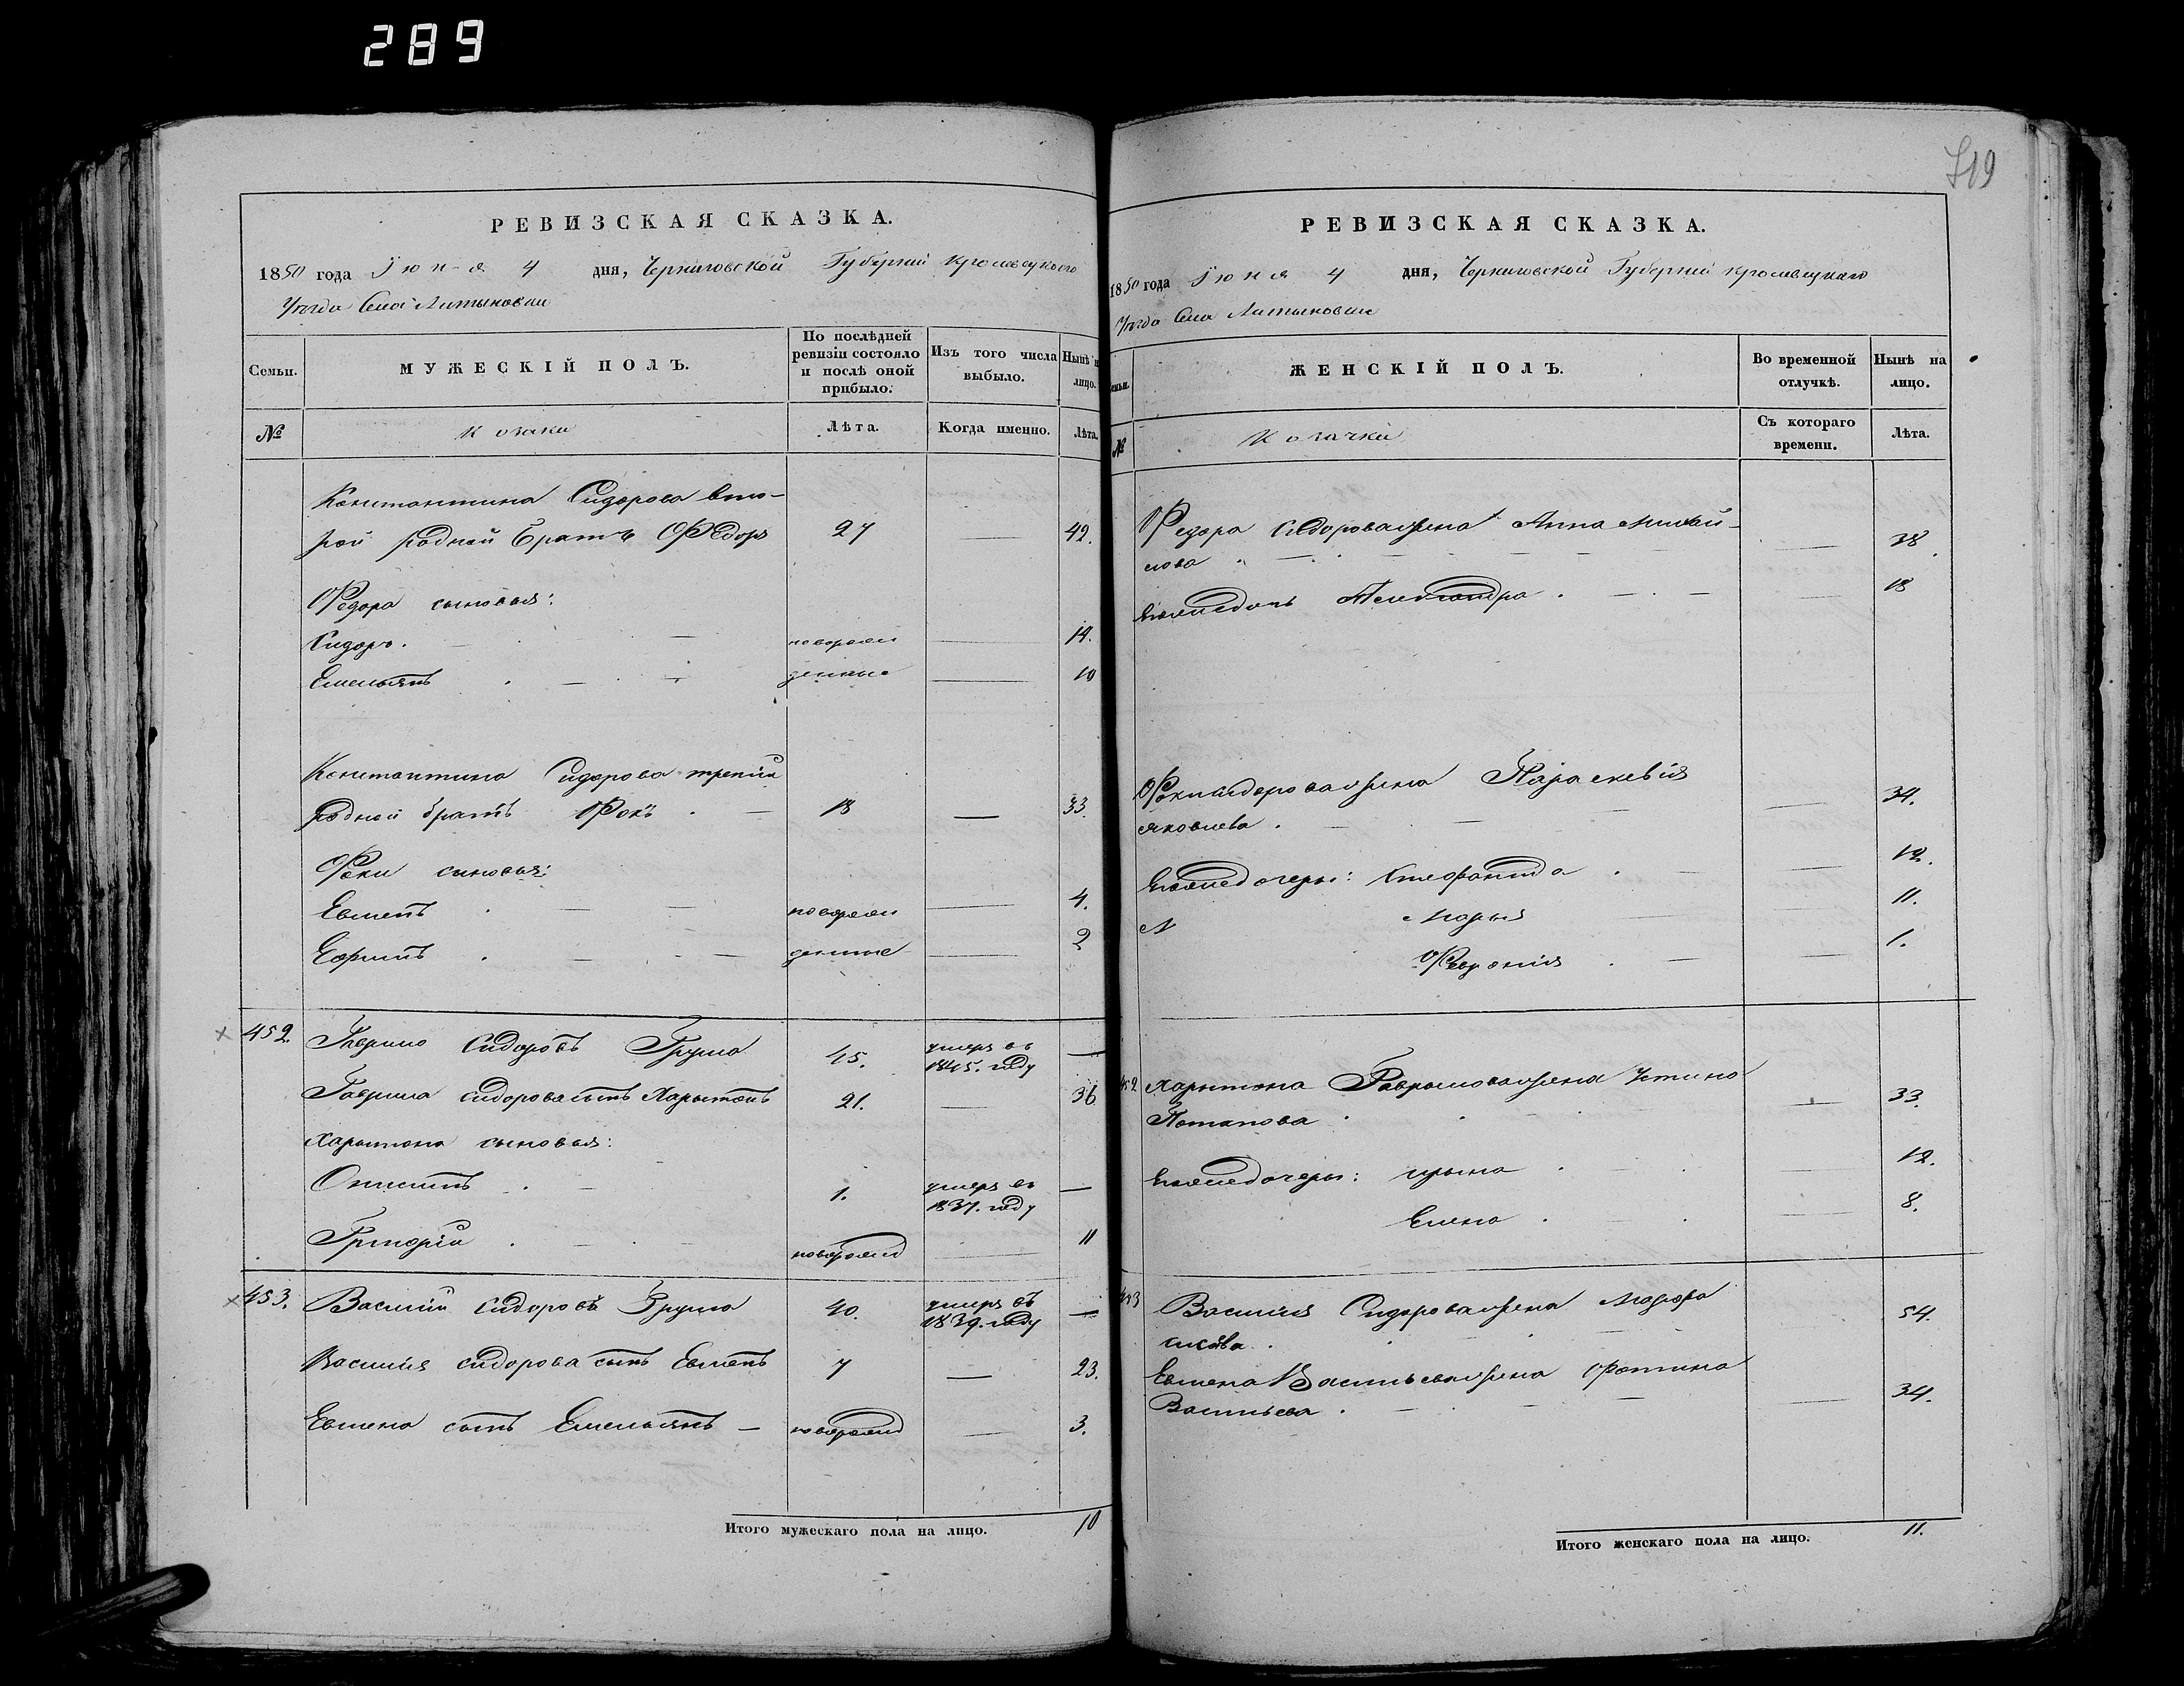 289
519
РЕВИЗСКАЯ СКАЗКА.
1850 года Іюня 4 дня, Черниговской Губерніи Кролевецкого
Уѣзда Села Литыновки
Семьи. МУЖЕСКІЙ ПОЛЪ. По послѣдней ревизіи состояло и послѣ оной прибыло. Изъ того числа выбыло. Нынѣ на лицо.
№ Козаки Лѣта. Когда именно. Лѣта.
Константина Сидорова вто-
рой родной братъ Ѳедоръ 27 42.
Ѳедора сыновья:
Сидоръ. новорож 14.
Емельянъ денные 10
Константина Сидорова третій
родной братъ Фокъ 18 33.
Фоки сыновья:
Евменъ новорож 4.
Ефимъ денные 2
452. Гаврило Сидоровъ Груша 45. умеръ въ 1845. году
Гаврила Сидорова сынъ Харытонъ 21. 36
Харытона сыновья:
1. умеръ въ 1837. году
Григорій новорожд 11
453. Василій Сидоровъ Груша 40. умеръ въ 1839. году
Василія Сидорова сынъ Евменъ 7 23.
Евмена сынъ Емельянъ новорожд 3.
Итого мужескаго пола на лицо. 10
РЕВИЗСКАЯ СКАЗКА.
1850 года Іюня 4 дня, Черниговской Губерніи Кролевецкаго
Уѣзда Села Литыновки
Семьи. ЖЕНСКІЙ ПОЛЪ. Во временной отлучкѣ. Нынѣ на лицо.
№ Козачки Съ котораго времени. Лѣта.
Ѳедора Сидорова жена Анна Михай-
лова 38.
Его же дочь Александра 18
Фоки Сидорова жена Параскевія
Яковлева 34.
Его же дочери: Стефанида 12.
Марья 11.
Февронія 1.
452 Харытона Гаврилова жена Устина
Потапова 33.
Его же дочери: Ирына 12.
Елена 8.
453 Василія Сидорова жена Марфа
54.
Евмена Васильева жена Фотина
Васильева 34.
Итого женскаго пола на лицо. 11.